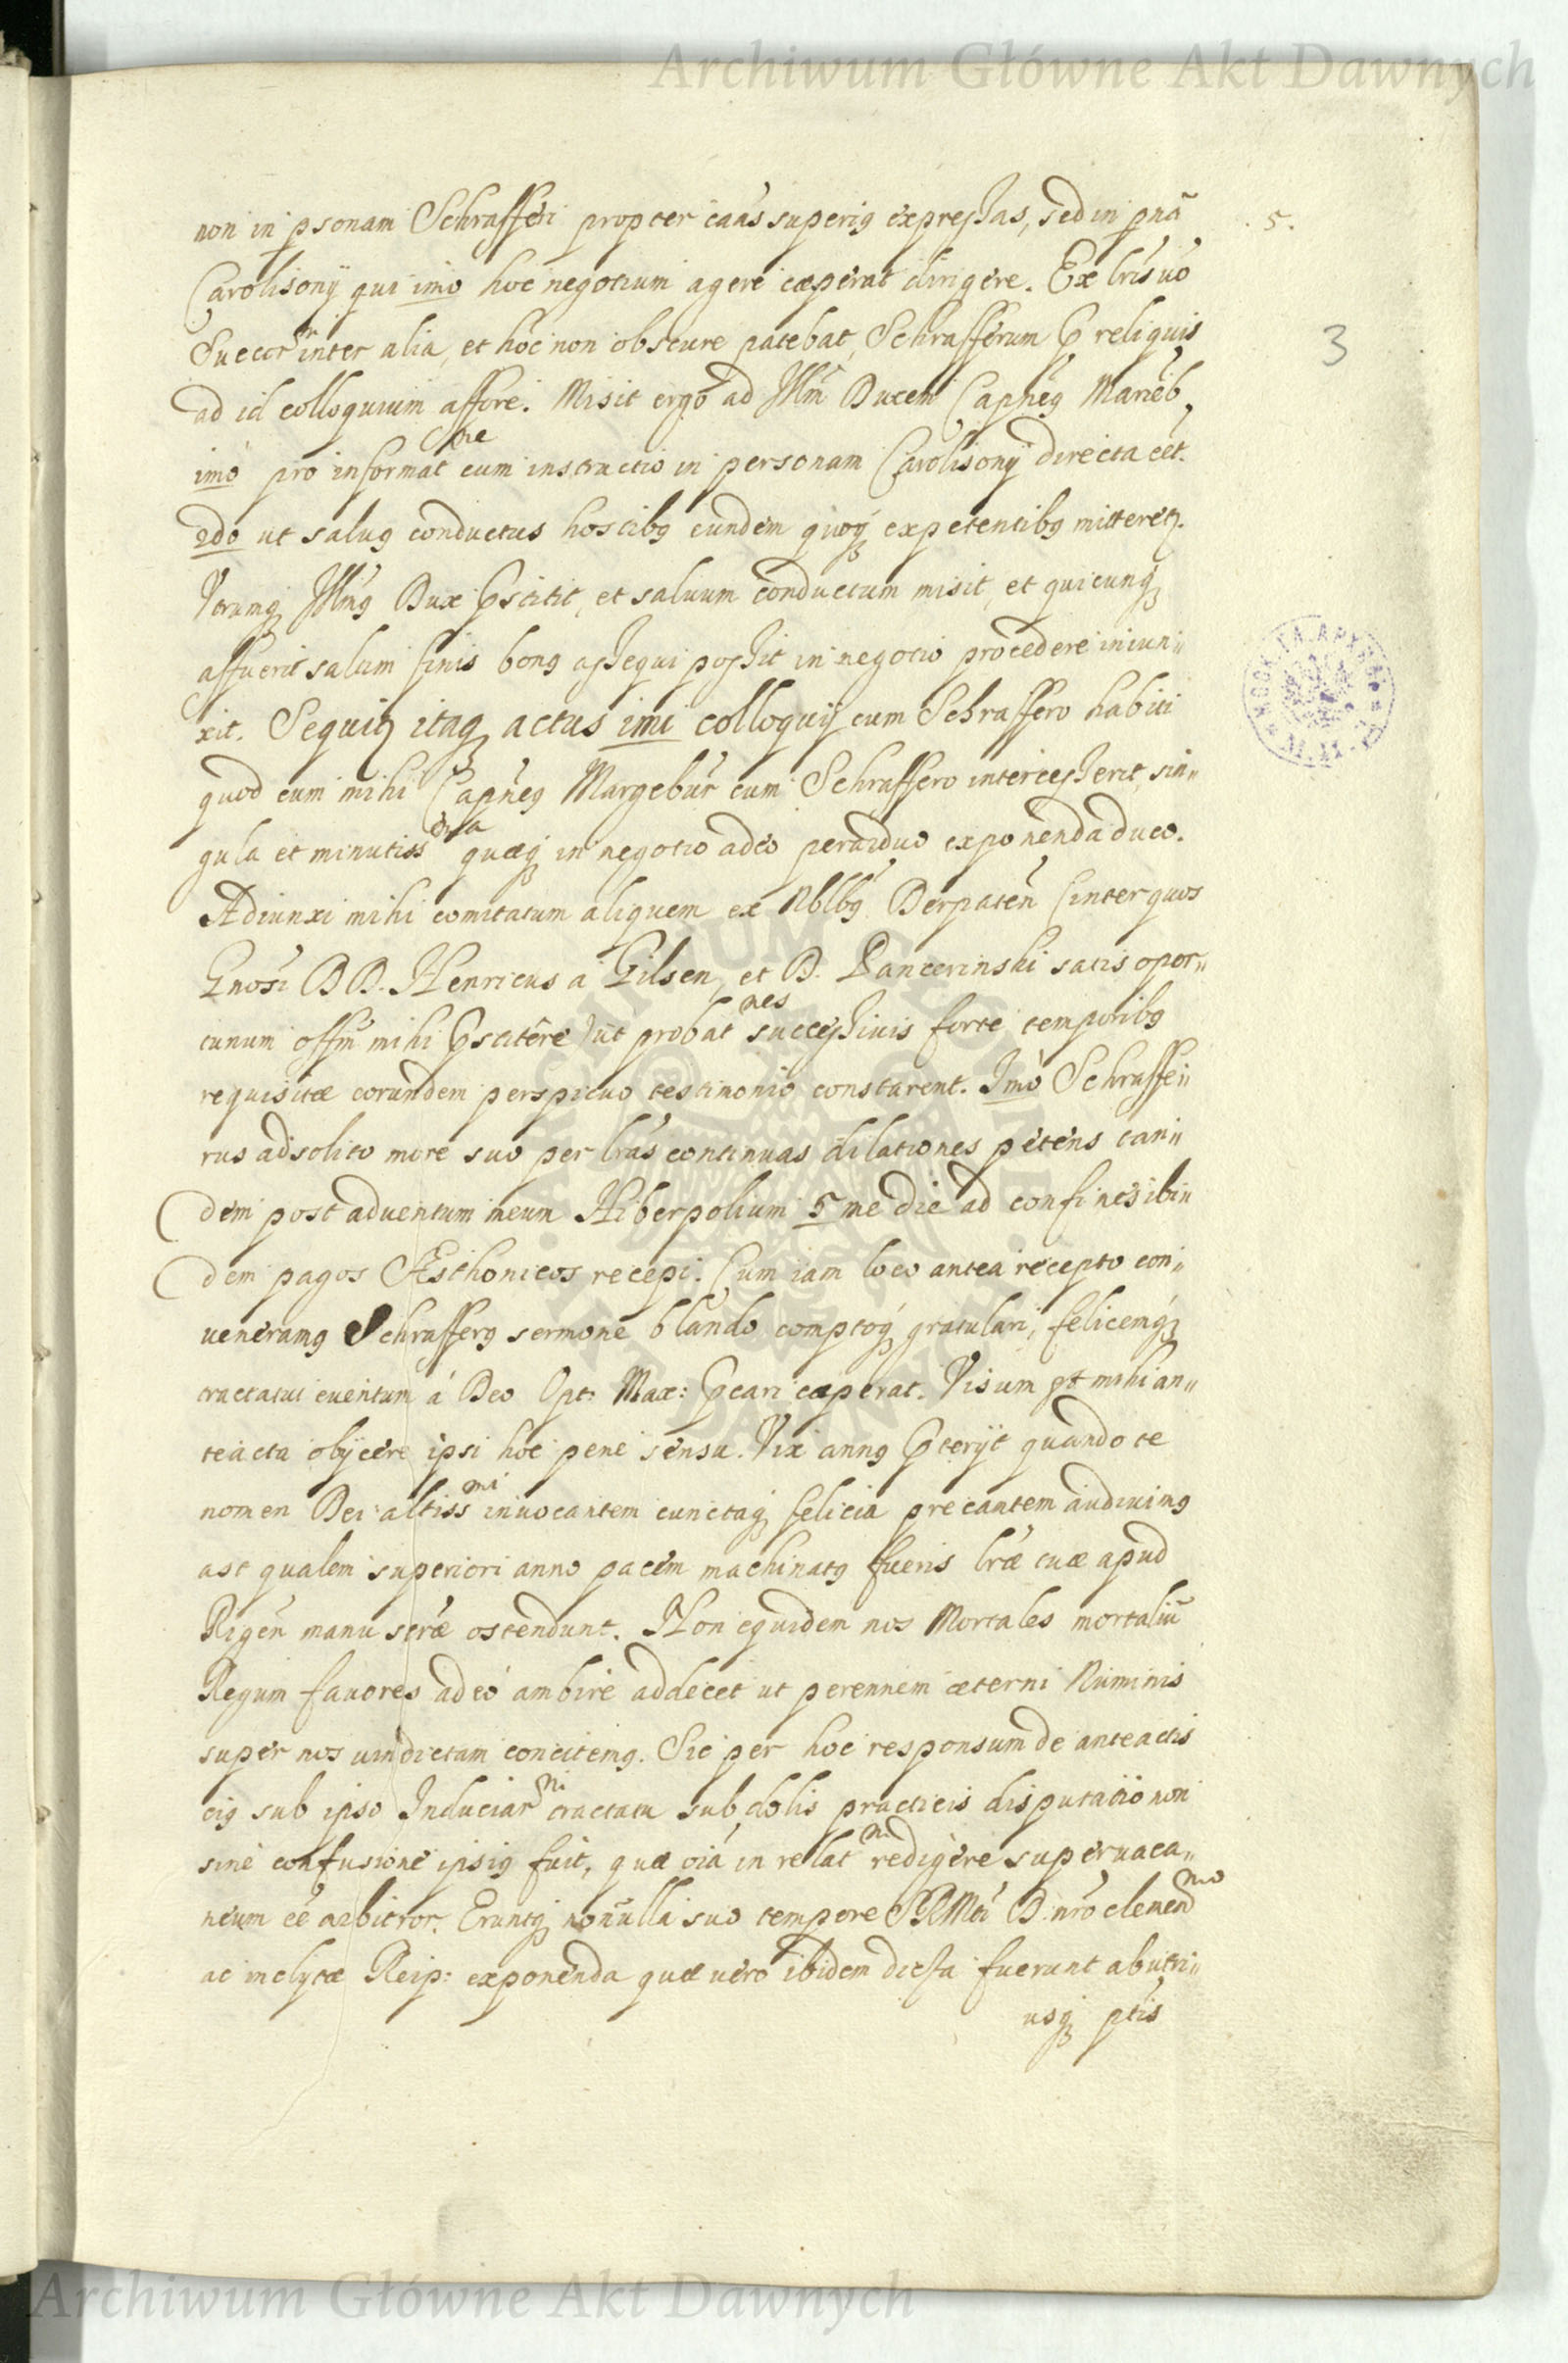 Archiwum Główne Akt Dawnych
non in psonam Schrafferi propter caãs superiꝯ expressas, sed in pnã
5.
Carolisonij qui imo hoc negotium agere cæperat dirigere. Ex lris uo
Suecor inter alia, et hoc non obscure patebat, Schrafferum P reliquis
3
ad id colloquium affore. Misit ergo ad Illm Ducem Capneꝯ Marieb,
imo pro informatne cum instructio in personam Carolisonij directa eet.
2do ut saluꝯ conductus hostibꝯ eundem quoqꝫ expetentibꝯ mitteretꝛ.
Vtrumqꝫ Illmꝯ Dux Pstitit, et saluum conductum misit, et quicunqꝫ
affuerit salum finis bonꝯ assequi possit in negotio procedere iniun„
xit. Sequitꝛ itaqꝫ actus imi colloquij cum Schraffero habiti
quod cum mihi Capneꝯ Margebur cum Schraffero intercesserit, sin„
gula et minutissma quæqꝫ in negotio adeo perarduo exponenda duco.
Adiunxi mihi comitatum aliquem ex Nblbꝯ Derpaten (inter quos
Gnosi DD. Henricus a Tilsen, et D. Pancerinski satis opor„
tunum offm mihi Pstitêre) ut probatnes successiuis forte temporibꝯ
requisitæ eorundem perspicuo testimonio constarent. Imo Schraffe„
rus ad solito more suo per lras continuas dilationes petens tan„
dem post aduentum meum Hiberpolium 5 me die ad confines ibi„
dem pagos Æsthonicos recepi. Cum iam loco antea recepto con„
ueneramꝯ Schrafferꝯ sermone blando comptoqꝫ gratulari, felicemqꝫ
tractatui euentum á Deo Opt: Max: Pcari cæperat. Visum et mihi an„
teacta obijcere ipsi hoc pene sensu. Vix annꝯ Pterijt quando te
nomen Dei altissmi inuocantem cunctaqꝫ felicia precantem audiuimꝯ
ast qualem superiori anno pacem machinatꝯ fueris lræ tuæ apud
Rigen manu scræ ostendunt. Non equidem nos Mortales mortaliũ
Regum fauores adeó ambire addecet ut perennem æterni Numinis
super nos uindictam concitemꝯ. Sic per hoc responsum de anteactis
eiꝯ sub ipso Induciar tractatu subdolis practicis disputatio non
sine confusione ipsiꝯ fuit, quæ oiá in relatn redigere superuaca„
neum eé arbitror. Eruntqꝫ nonulla suo tempore SRMti D. nro clemenmo
ac inclytæ Reip: exponenda quæ uero ibidem dicta fuerunt ab utri„
usqꝫ ptis
Archiwum Główne Akt Dawnych